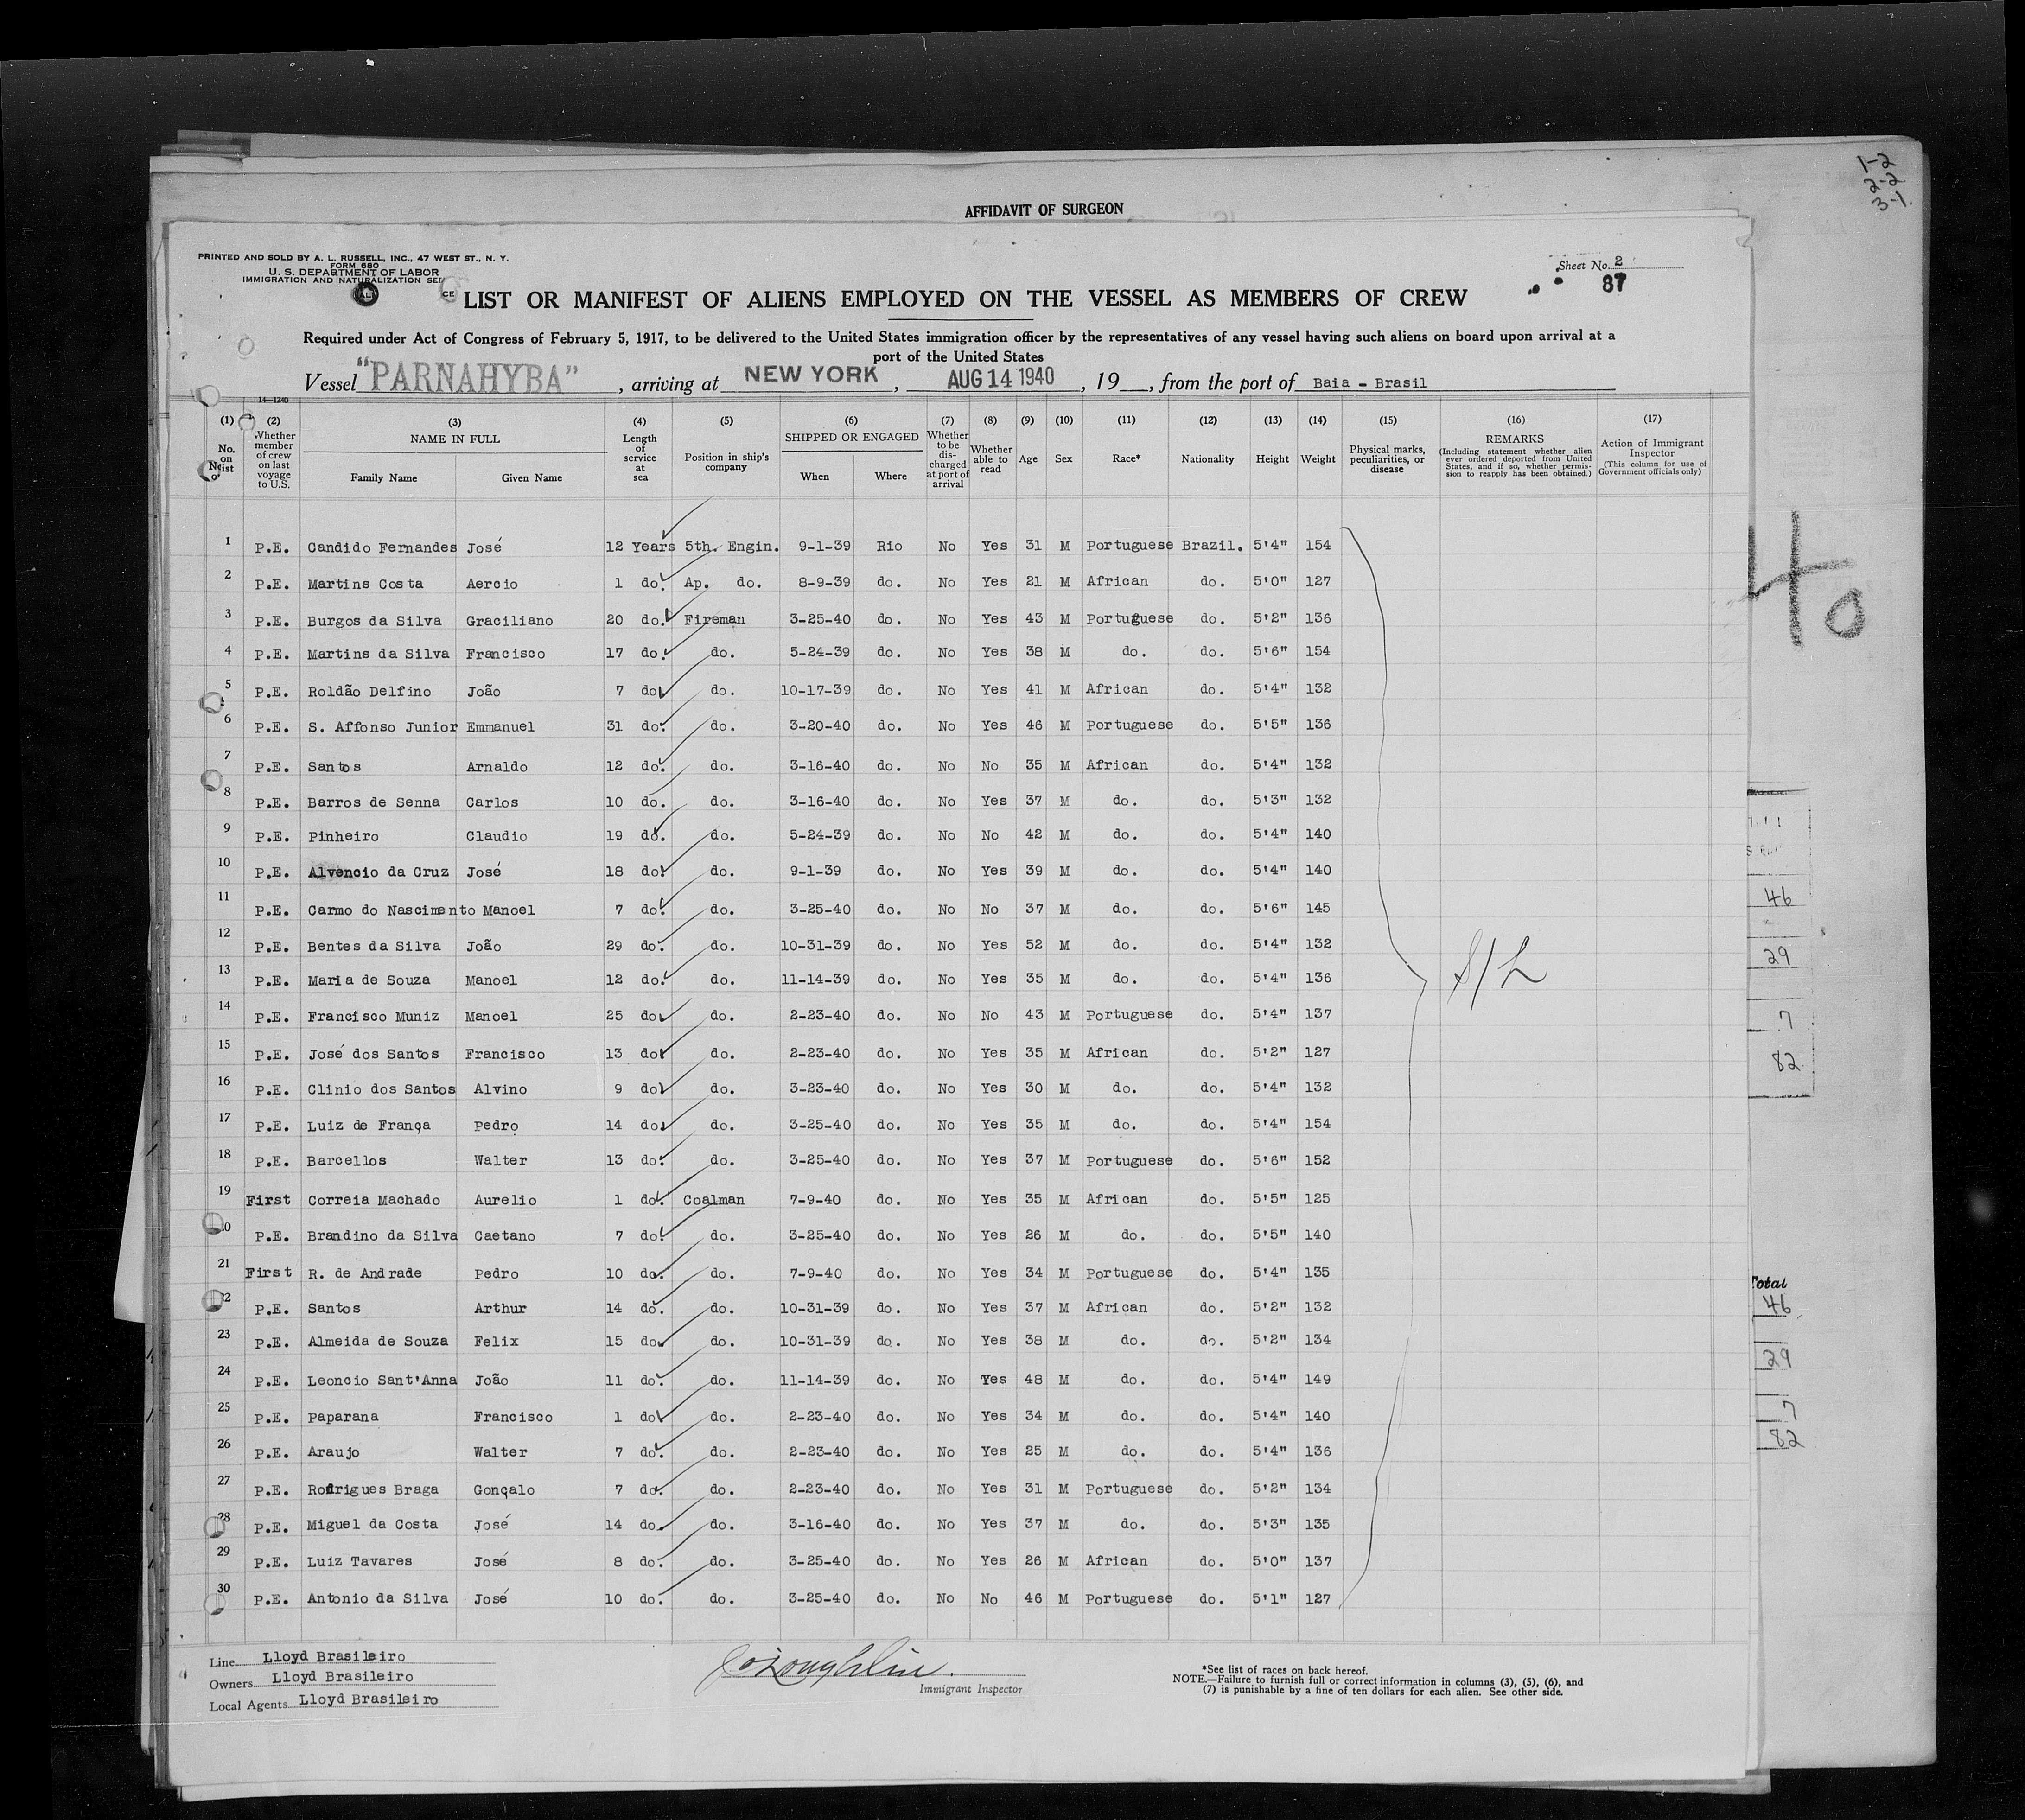 1-2
2-2
3-1
AFFIDAVIT OF SURGEON
PRINTED AND SOLD BY A. L. RUSSELL, INC., 47 WEST ST., N. Y.
FORM 680
U. S. DEPARTMENT OF LABOR
IMMIGRATION AND NATURALIZATION SE
Sheet No. 2
87
LIST OR MANIFEST OF ALIENS EMPLOYED ON THE VESSEL AS MEMBERS OF CREW
Required under Act of Congress of February 5, 1917, to be delivered to the United States immigration officer by the representatives of any vessel having such aliens on board upon arrival at a
port of the United States
Vessel "PARNAHYBA" , arriving at NEW YORK , AUG 14 1940 , 19 , from the port of Baia - Brasil
14-1240
(1) (2) (3) (4) (5) (6) (7) (8) (9) (10) (11) (12) (13) (14) (15) (16) (17)
No. on list
Whether member of crew on last voyage to U.S.
NAME IN FULL
Family Name Given Name
Length of service at sea
Position in ship's company
SHIPPED OR ENGAGED
When Where
Whether to be discharged at port of arrival
Whether able to read
Age Sex Race* Nationality Height Weight
Physical marks, peculiarities, or disease
REMARKS
(Including statement whether alien ever ordered deported from United States, and if so, whether permission to reapply has been obtained.)
Action of Immigrant Inspector
(This column for use of Government officials only)
1 P.E. Candido Fernandes José 12 Years 5th. Engin. 9-1-39 Rio No Yes 31 M Portuguese Brazil. 5'4" 154
2 P.E. Martins Costa Aercio 1 do. Ap. do. 8-9-39 do. No Yes 21 M African do. 5'0" 127
3 P.E. Burgos da Silva Graciliano 20 do. Fireman 3-25-40 do. No Yes 43 M Portuguese do. 5'2" 136
4 P.E. Martins da Silva Francisco 17 do. do. 5-24-39 do. No Yes 38 M do. do. 5'6" 154
5 P.E. Roldão Delfino João 7 do. do. 10-17-39 do. No Yes 41 M African do. 5'4" 132
6 P.E. S. Affonso Junior Emmanuel 31 do. do. 3-20-40 do. No Yes 46 M Portuguese do. 5'5" 136
7 P.E. Santos Arnaldo 12 do. do. 3-16-40 do. No No 35 M African do. 5'4" 132
8 P.E. Barros de Senna Carlos 10 do. do. 3-16-40 do. No Yes 37 M do. do. 5'3" 132
9 P.E. Pinheiro Claudio 19 do. do. 5-24-39 do. No No 42 M do. do. 5'4" 140
10 P.E. Alvencio da Cruz José 18 do. do. 9-1-39 do. No Yes 39 M do. do. 5'4" 140
11 P.E. Carmo do Nascimento Manoel 7 do. do. 3-25-40 do. No No 37 M do. do. 5'6" 145
12 P.E. Bentes da Silva João 29 do. do. 10-31-39 do. No Yes 52 M do. do. 5'4" 132
13 P.E. Maria de Souza Manoel 12 do. do. 11-14-39 do. No Yes 35 M do. do. 5'4" 136
14 P.E. Francisco Muniz Manoel 25 do. do. 2-23-40 do. No No 43 M Portuguese do. 5'4" 137
15 P.E. José dos Santos Francisco 13 do. do. 2-23-40 do. No Yes 35 M African do. 5'2" 127
16 P.E. Clinio dos Santos Alvino 9 do. do. 3-23-40 do. No Yes 30 M do. do. 5'4" 132
17 P.E. Luiz de França Pedro 14 do. do. 3-25-40 do. No Yes 35 M do. do. 5'4" 154
18 P.E. Barcellos Walter 13 do. do. 3-25-40 do. No Yes 37 M Portuguese do. 5'6" 152
19 First Correia Machado Aurelio 1 do. Coalman 7-9-40 do. No Yes 35 M African do. 5'5" 125
20 P.E. Brandino da Silva Caetano 7 do. do. 3-25-40 do. No Yes 26 M do. do. 5'5" 140
21 First R. de Andrade Pedro 10 do. do. 7-9-40 do. No Yes 34 M Portuguese do. 5'4" 135
22 P.E. Santos Arthur 14 do. do. 10-31-39 do. No Yes 37 M African do. 5'2" 132
23 P.E. Almeida de Souza Felix 15 do. do. 10-31-39 do. No Yes 38 M do. do. 5'2" 134
24 P.E. Leoncio Sant'Anna João 11 do. do. 11-14-39 do. No Yes 48 M do. do. 5'4" 149
25 P.E. Paparana Francisco 1 do. do. 2-23-40 do. No Yes 34 M do. do. 5'4" 140
26 P.E. Araujo Walter 7 do. do. 2-23-40 do. No Yes 25 M do. do. 5'4" 136
27 P.E. Rodrigues Braga Gonçalo 7 do. do. 2-23-40 do. No Yes 31 M Portuguese do. 5'2" 134
28 P.E. Miguel da Costa José 14 do. do. 3-16-40 do. No Yes 37 M do. do. 5'3" 135
29 P.E. Luiz Tavares José 8 do. do. 3-25-40 do. No Yes 26 M African do. 5'0" 137
30 P.E. Antonio da Silva José 10 do. do. 3-25-40 do. No No 46 M Portuguese do. 5'1" 127
40
46
29
7
82
Total
46
29
7
82
Line Lloyd Brasileiro
Owners Lloyd Brasileiro
Local Agents Lloyd Brasileiro
Immigrant Inspector
*See list of races on back hereof.
NOTE.—Failure to furnish full or correct information in columns (3), (5), (6), and
(7) is punishable by a fine of ten dollars for each alien. See other side.